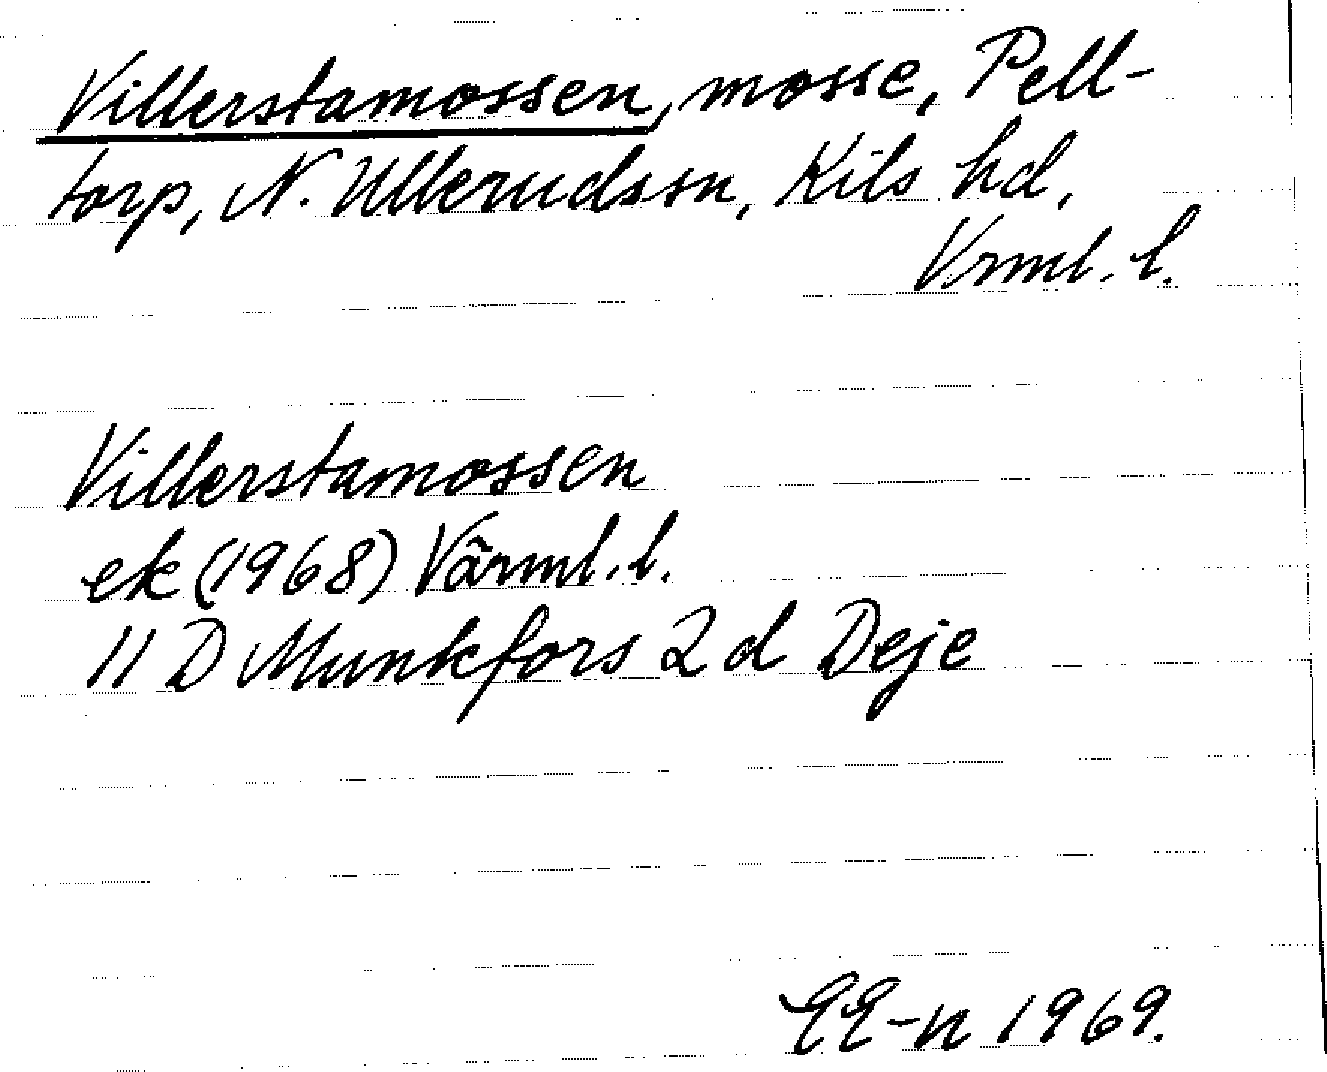 Villerstamossen, mosse, Pell-
torp, N. Ullerudssn, Kils hd,
Vrml. l.
Villerstamossen
ek (1968) Värml. l.
11 D Munkfors 2 d Deje
EE-n 1969.